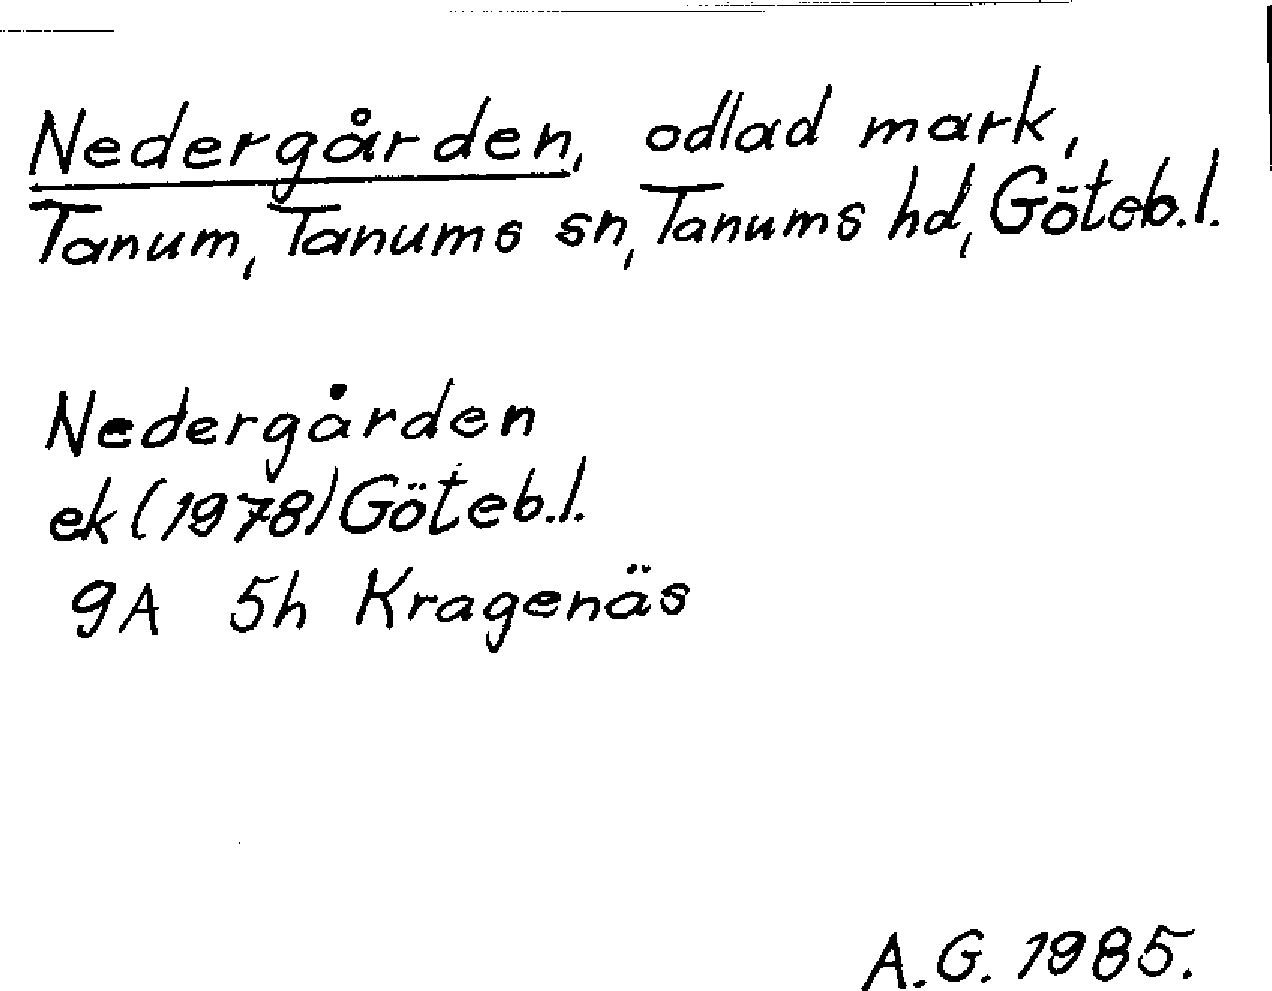 Nedergården, odlad mark,
Tanum, Tanums sn, Tanums hd, Göteb.l.
Nedergården
ek (1978) Göteb.l.
9A 5h Kragenäs
A.G. 1985.